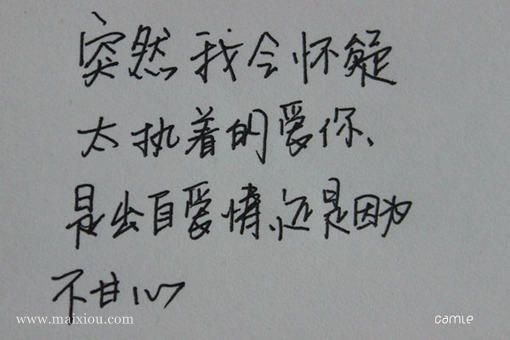 突然我会怀疑
太执着的爱你、
是出自爱情、还是因为
不甘心
www.maixiou.com
camle